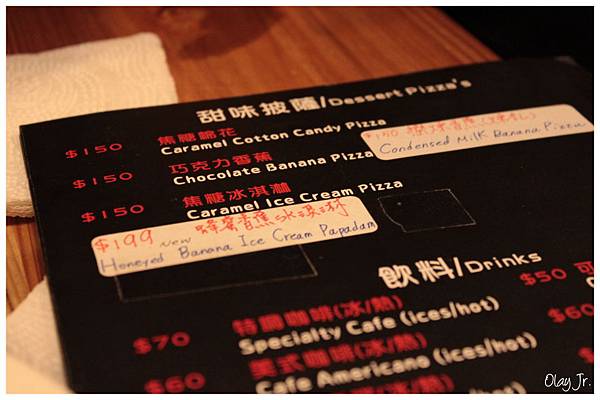 甜味披薩/Dessert Pizza's
$150 焦糖綿花
Caramel Cotton Candy Pizza
$150
Condensed Milk Banana Pizza
$150 巧克力香蕉
Chocolate Banana Pizza
$150 焦糖冰淇淋
Caramel Ice Cream Pizza
$199 New 蜂蜜香蕉冰淇淋
Honeyed Banana Ice Cream Papadam
飲料/Drinks
$70 特調咖啡(冰/熱)
Specialty Cafe (ices/hot)
$60 美式咖啡(冰/熱)
Cafe Americano (ices/hot)
(冰/熱)
$50 可
$60
Olay Jr.